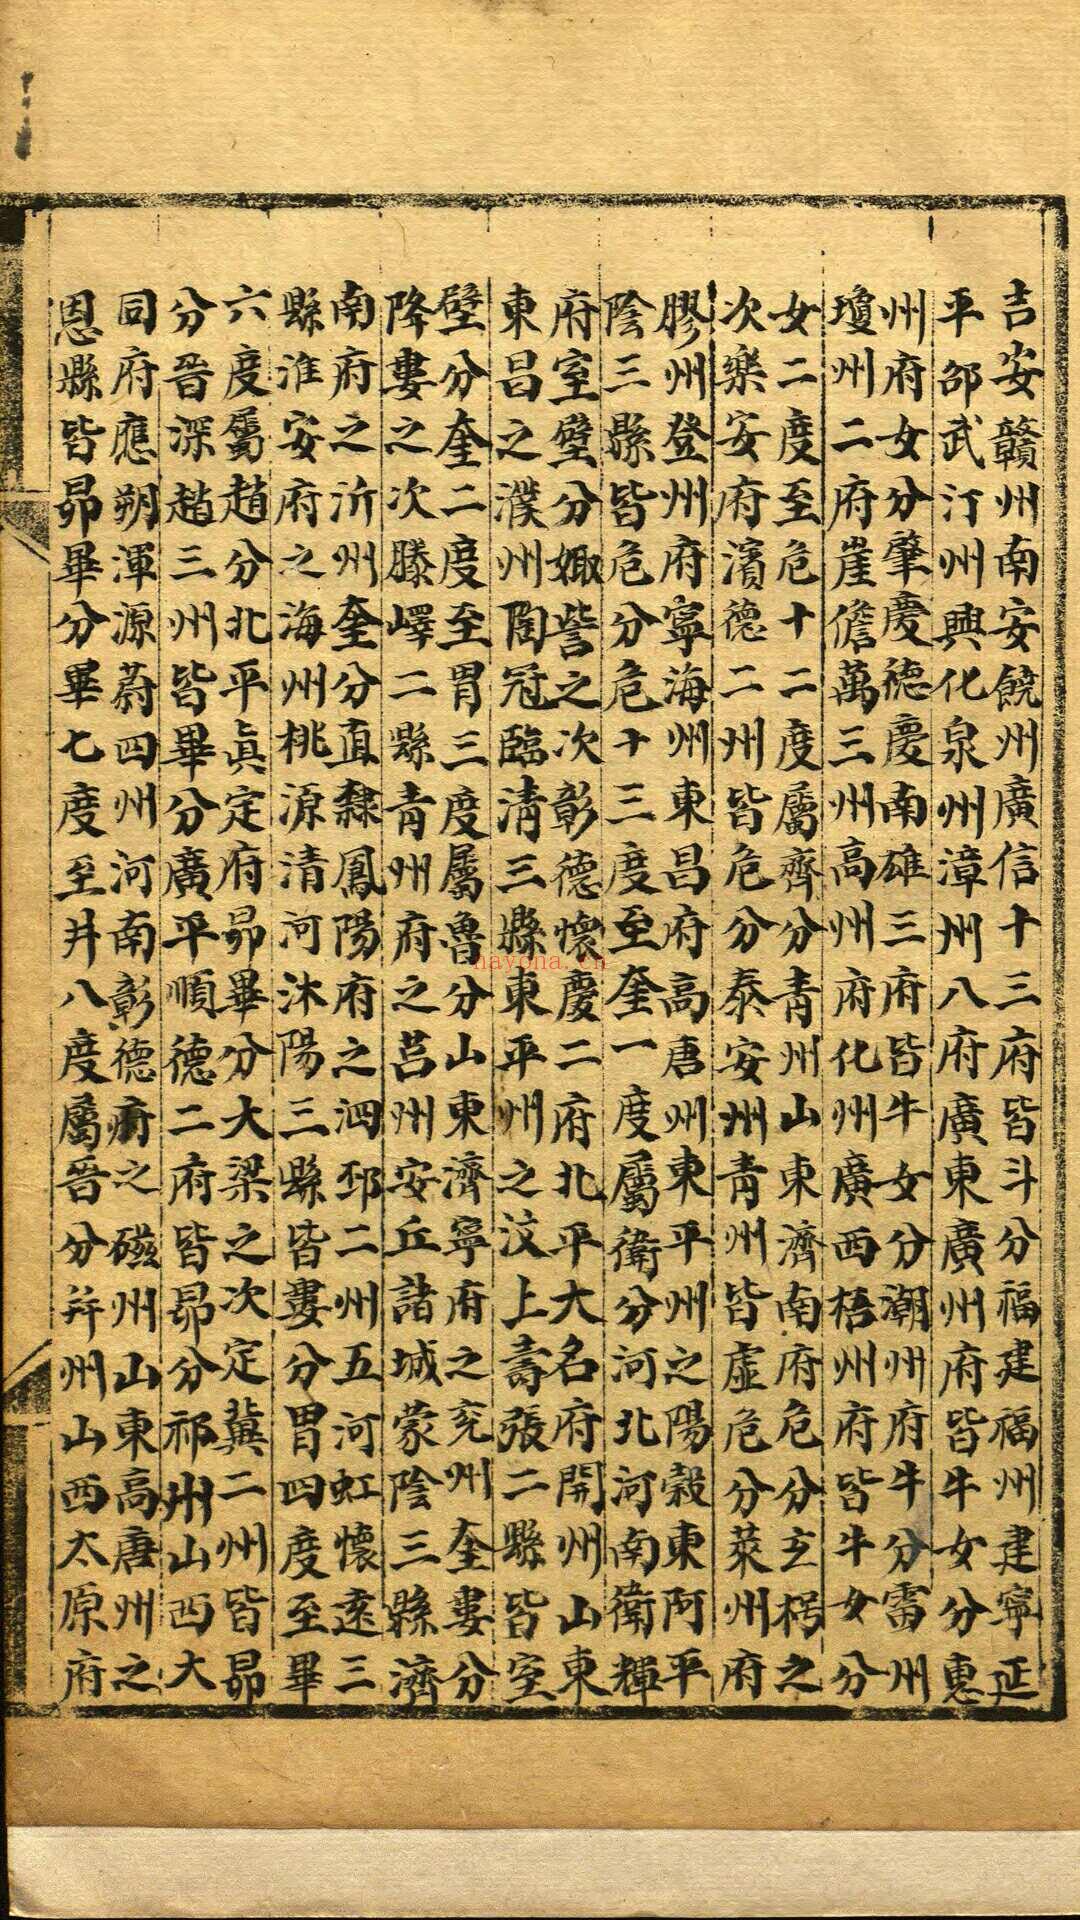 吉安贛州南安饒州廣信十三府皆斗分福建福州建寧延
平邵武汀州興化泉州漳州八府廣東廣州府皆牛女分惠
州府女分肇慶德慶南雄三府皆牛女分潮州府牛分雷州
瓊州二府崖儋萬三州高州府化州廣西梧州府皆牛女分
女二度至危十二度屬齊分青州山東濟南府危分玄枵之
次樂安府濱德二州皆危分泰安州青州皆虛危分萊州府
膠州登州府寧海州東昌府高唐州東平州之陽穀東阿平
陰三縣皆危分危十三度至奎一度屬衛分河北河南衛輝
府室壁分娵訾之次彰德懷慶二府北平大名府開州山東
東昌之濮州陶冠臨清三縣東平州之汶上壽張二縣皆室
壁分奎二度至胃三度屬魯分山東濟寧府之兖州奎婁分
降婁之次滕嶧二縣青州府之莒州安丘諸城蒙陰三縣濟
南府之沂州奎分直隸鳳陽府之泗邳二州五河虹懷遠三
縣淮安府之海州桃源清河沐陽三縣皆婁分胃四度至畢
六度屬趙分北平眞定府昴畢分大梁之次定冀二州皆昴
分晉深趙三州皆畢分廣平順德二府皆昴分祁州山西大
同府應朔渾源蔚四州河南彰德府之磁州山東高唐州之
恩縣皆昴畢分畢七度至井八度屬晉分并州山西太原府
nayona.cn